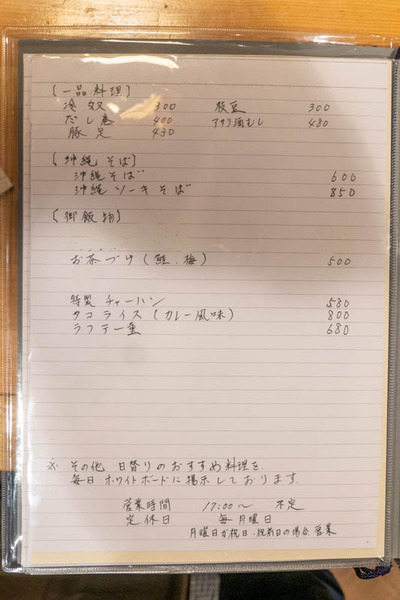 〔一品料理〕
冷奴 300 枝豆 300
だし巻 400 アサリ酒むし 480
豚足 430
〔沖縄そば〕
沖縄そば 600
沖縄ソーキそば 850
〔御飯物〕
お茶づけ(鮭、梅) 500
特製チャーハン 580
タコライス(カレー風味) 800
ラフテー重 680
※ その他 日替りのおすすめ料理を
毎日ホワイトボードに掲示しております。
営業時間 17:00〜 不定
定休日 毎月曜日
月曜日が祝日、祝前日の場合 営業